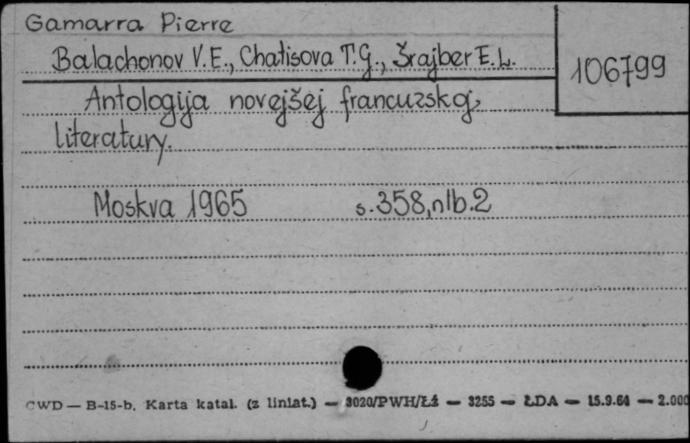 Gamarra Pierre
Balachonov V.E., Chatisova T.G., Šrajber E.L.
106799
Antologija novejšej francuzskoj
literatury.
Moskva 1965 s.358,nlb.2
CWD — B-15-b. Karta katal. (z liniat.) — 3020/PWH/Łż — 3255 — ŁDA — 15.9.64 — 2.000